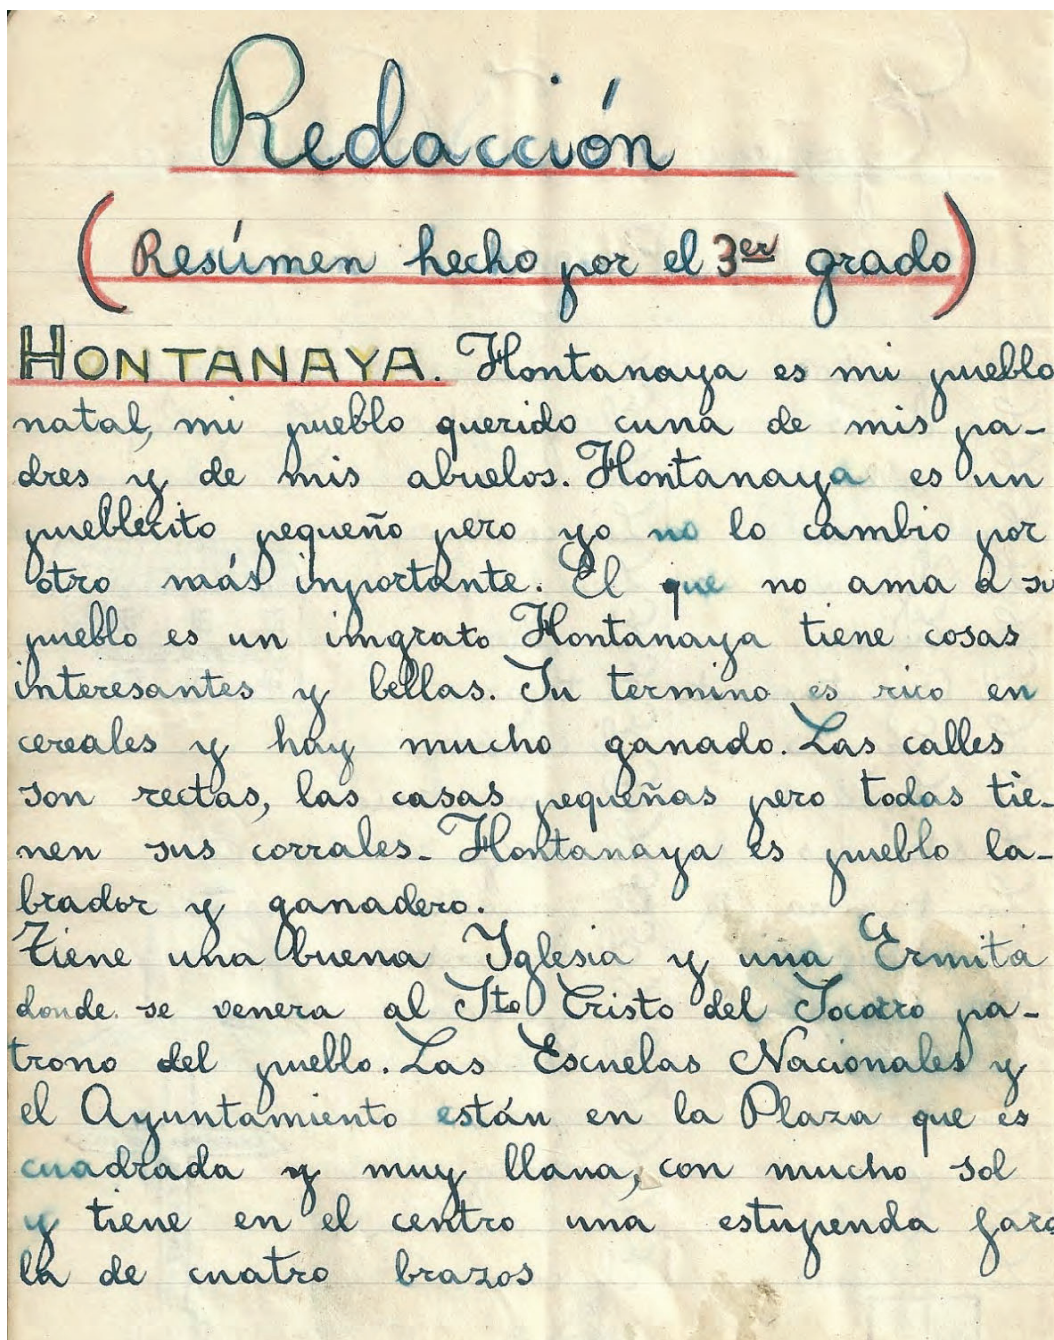 Redacción
(Resúmen hecho por el 3er grado)
HONTANAYA. Hontanaya es mi pueblo
natal, mi pueblo querido cuna de mis pa-
dres y de mis abuelos. Hontanaya es un
pueblecito pequeño pero yo no lo cambio por
otro más inportante. El que no ama a su
pueblo es un imgrato Hontanaya tiene cosas
interesantes y bellas. Su termino es rico en
cereales y hay mucho ganado. Las calles
son rectas, las casas pequeñas pero todas tie-
nen sus corrales- Hontanaya es pueblo la-
brador y ganadero.
Tiene una buena Iglesia y una Ermita
donde se venera al Sto Cristo del Socorro pa-
trono del pueblo. Las Escuelas Nacionales y
el Ayuntamiento están en la Plaza que es
cuadrada y muy llana, con mucho sol
y tiene en el centro una estupenda faro
la de cuatro brazos